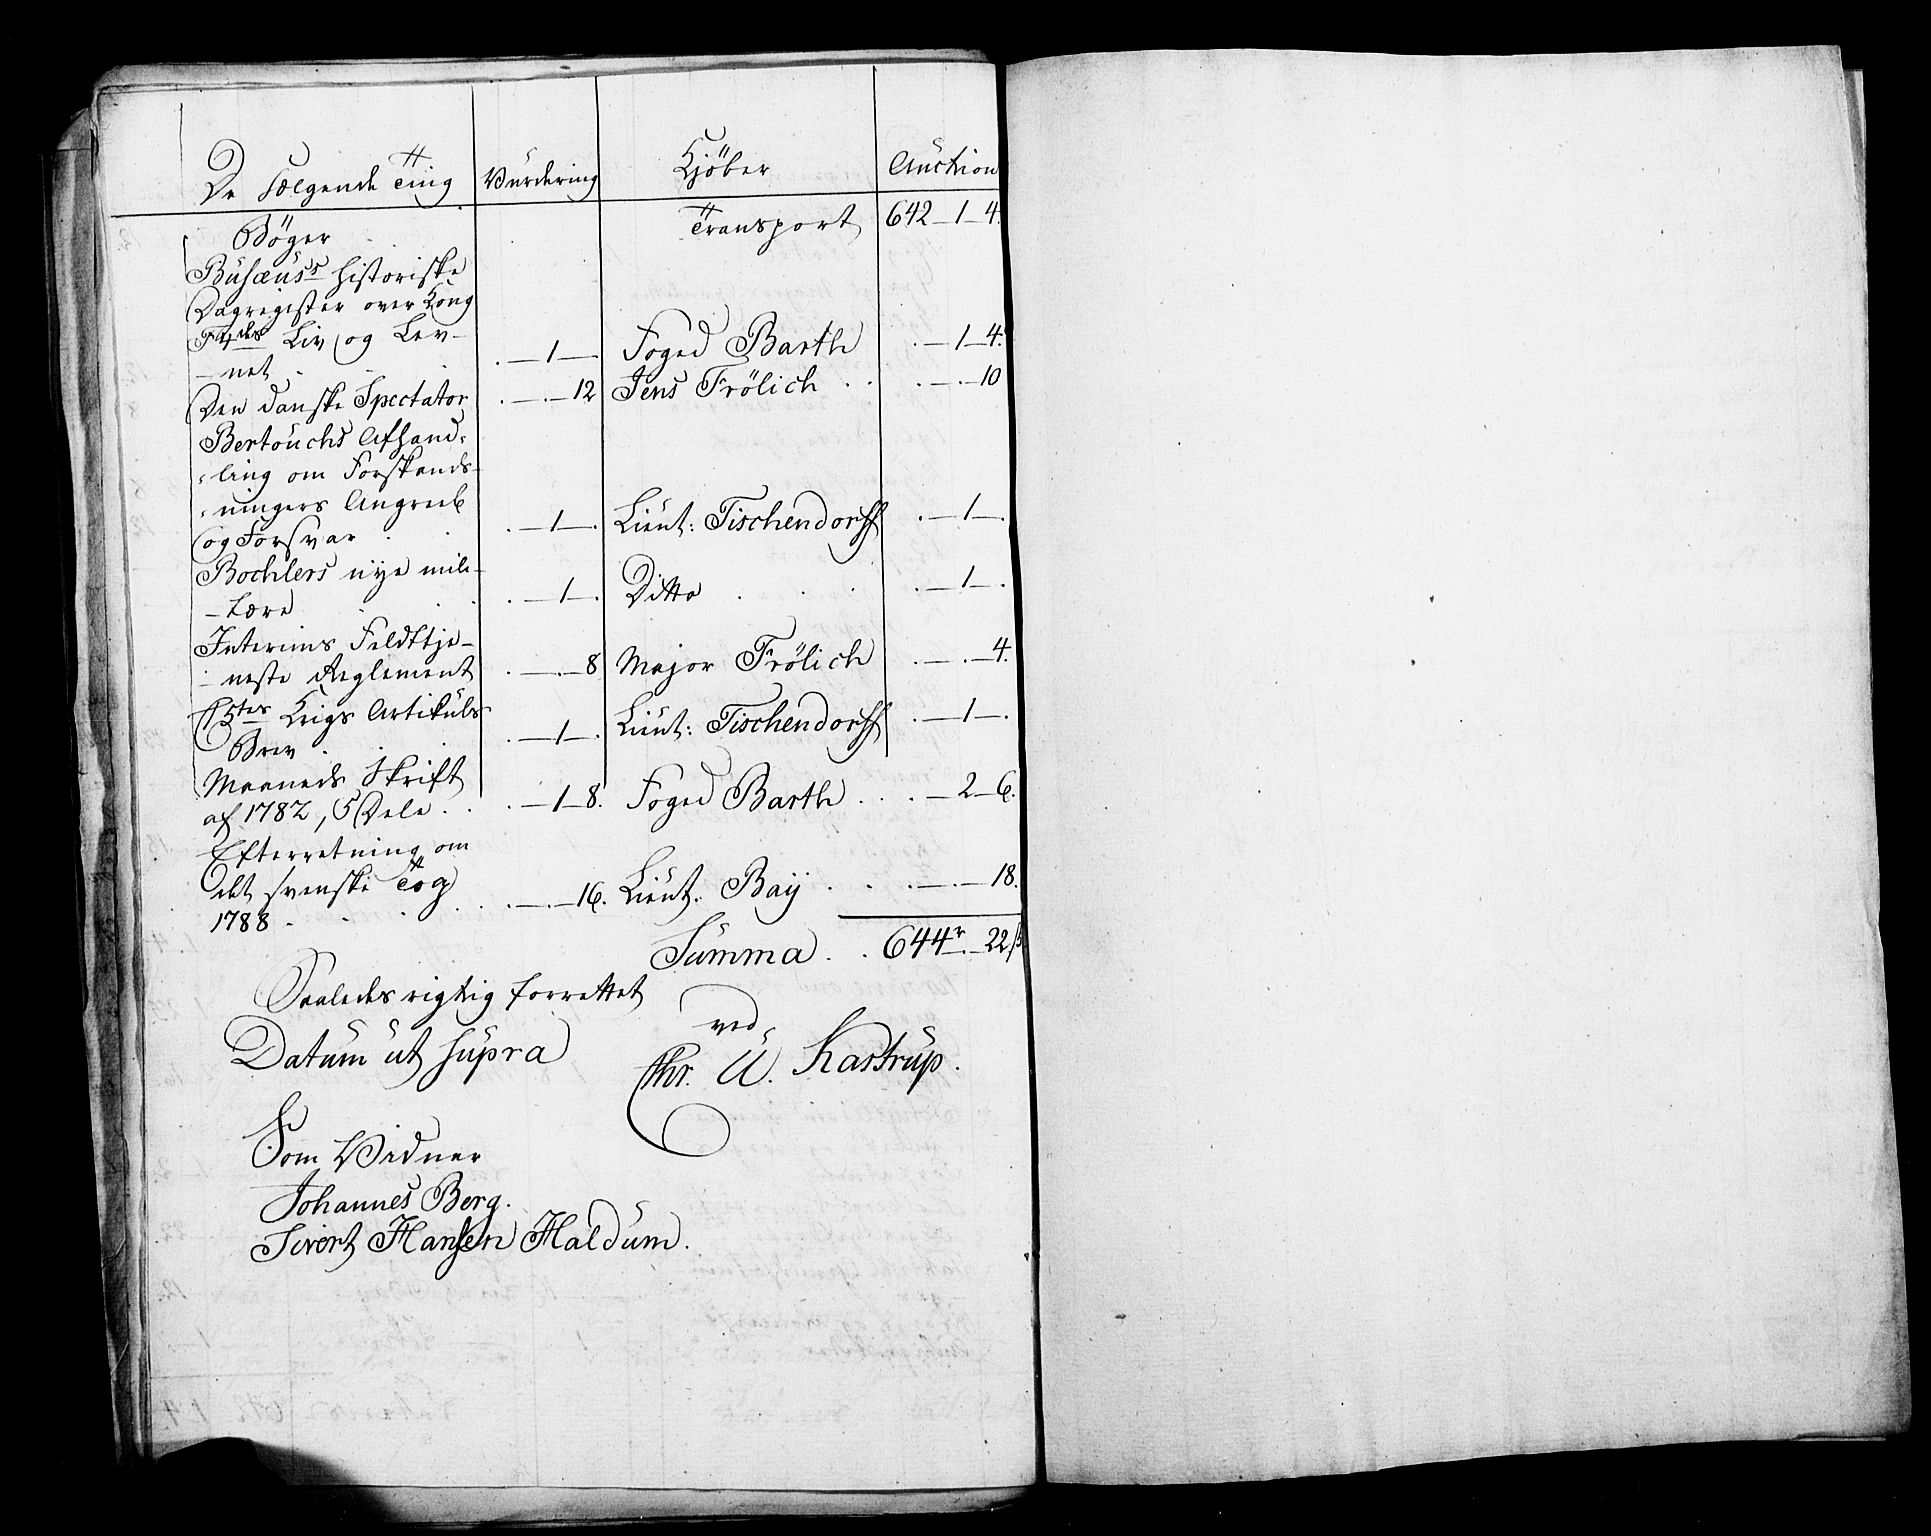 De sælgende Ting Vurdering Kjöber Auction
Bøger Transport 642 — 1 — 4.
Busæus's Historiske
Dagregister over Kong
F 4des Liv og Lev-
-net . . — 1 — Foged Barth . — 1 — 4.
Den danske Spectator . — . — 12 Jens Frölich . . . — . — 10
Bertouchs Afhand-
-ling om Forskands-
-ningers Angreeb
og Forsvar . . . — 1 — . Lieut: Tischendorff . — 1 — .
Bochlers nye mili-
-tære . . . — 1 — . Ditto . . . . — 1 — .
Interims Feldttje-
-neste Reglement . — . — 8 Major Frölich . — . — 4.
C 5tes Krigs Artikuls
Brev . . . — 1 — . Lieut: Tischendorff . — 1 — .
Maaneds Skrift
af 1782, 5 Dele . . . — 1 — 8. Foged Barth . . . — 2 — 6.
Efterretning om
det svenske Tog
1788 . . . . — . — 16. Lieut: Baÿ . . . — . — 18.
Summa . . 644r — . — 22 ß
Saaledes rigtig forrettet
Datum ut supra
ved
Chr. U. Kastrup.
Som Vidner
Johannes Berg.
Sivert Hansen Haldum.